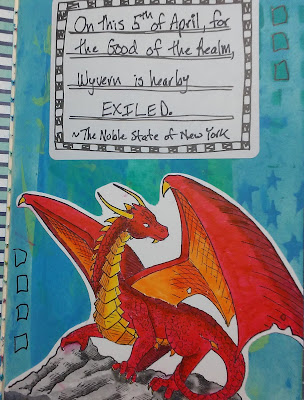 On this 5th of April, for
the Good of the Realm,
Wyvern is hearby
EXILED.
~The Noble State of New York